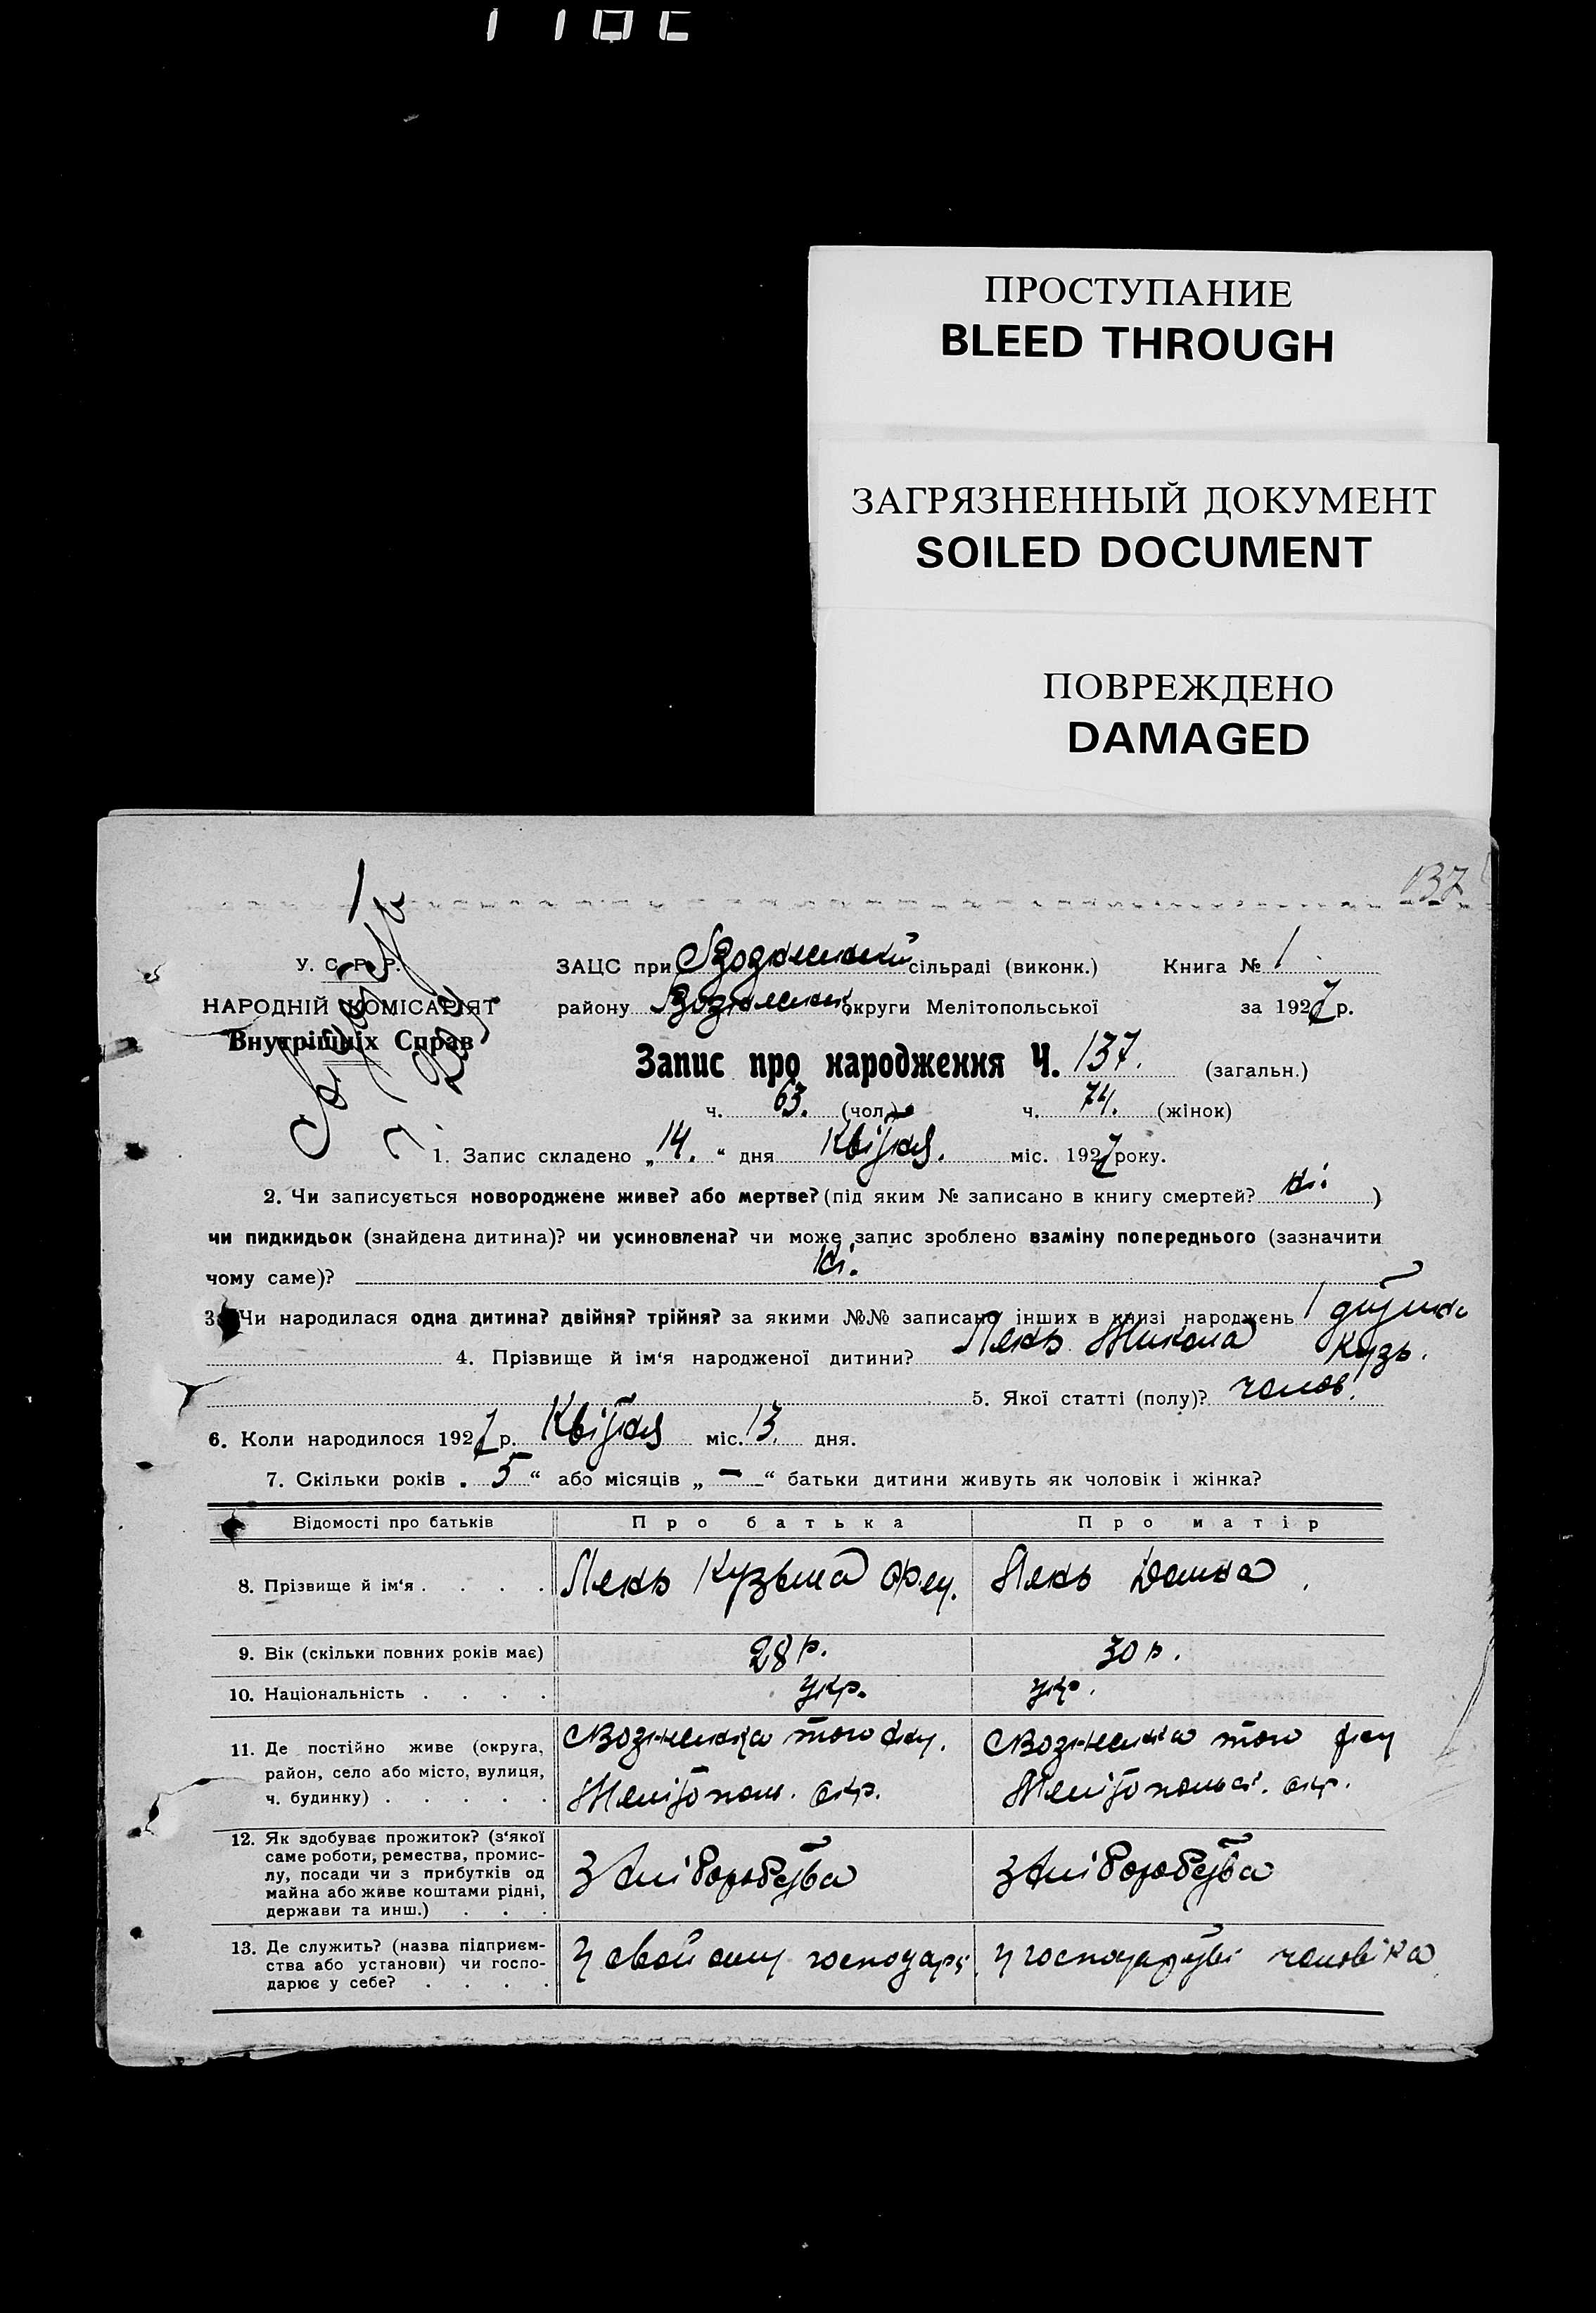 ПРОСТУПАНИЕ
BLEED THROUGH
ЗАГРЯЗНЕННЫЙ ДОКУМЕНТ
SOILED DOCUMENT
ПОВРЕЖДЕНО
DAMAGED
137
У. С. Р. Р.
НАРОДНІЙ КОМІСАРІЯТ
Внутрішніх Справ
ЗАЦС при сільраді (виконк.) Книга № 1
району округи Мелітопольської за 1927 р.
Запис про народження Ч. 137. (загальн.)
ч. 63. (чол.) ч. 74. (жінок)
1. Запис складено „14.“ дня Квітня. міс. 1927 року.
2. Чи записується новороджене живе? або мертве? (під яким № записано в книгу смертей? ні.)
чи пидкидьок (знайдена дитина)? чи усиновлена? чи може запис зроблено взаміну попереднього (зазначити
чому саме)? ні.
3. Чи народилася одна дитина? двійня? трійня? за якими №№ записано інших в книзі народжень 1 дитина
4. Прізвище й ім'я народженої дитини? Микола Кузь.
5. Якої статті (полу)? чолов.
6. Коли народилося 1927 р. Квітня міс. 13. дня.
7. Скільки років „5“ або місяців „—“ батьки дитини живуть як чоловік і жінка?
Відомості про батьків Про батька Про матір
8. Прізвище й ім'я . . . . Кузьма
9. Вік (скільки повних років має) 28 р. 30 р.
10. Національність . . . . укр. укр.
11. Де постійно живе (округа, район, село або місто, вулиця, ч. будинку) . . . . .
Мелітопол. окр. Мелітопольс. окр.
12. Як здобуває прожиток? (з'якої саме роботи, ремества, промислу, посади чи з прибутків од майна або живе коштами рідні, держави та инш.) . . . З хліборобства З хліборобства
13. Де служить? (назва підприємства або установи) чи господарює у себе? . . . . У свойому господарс. У господарстві чоловіка